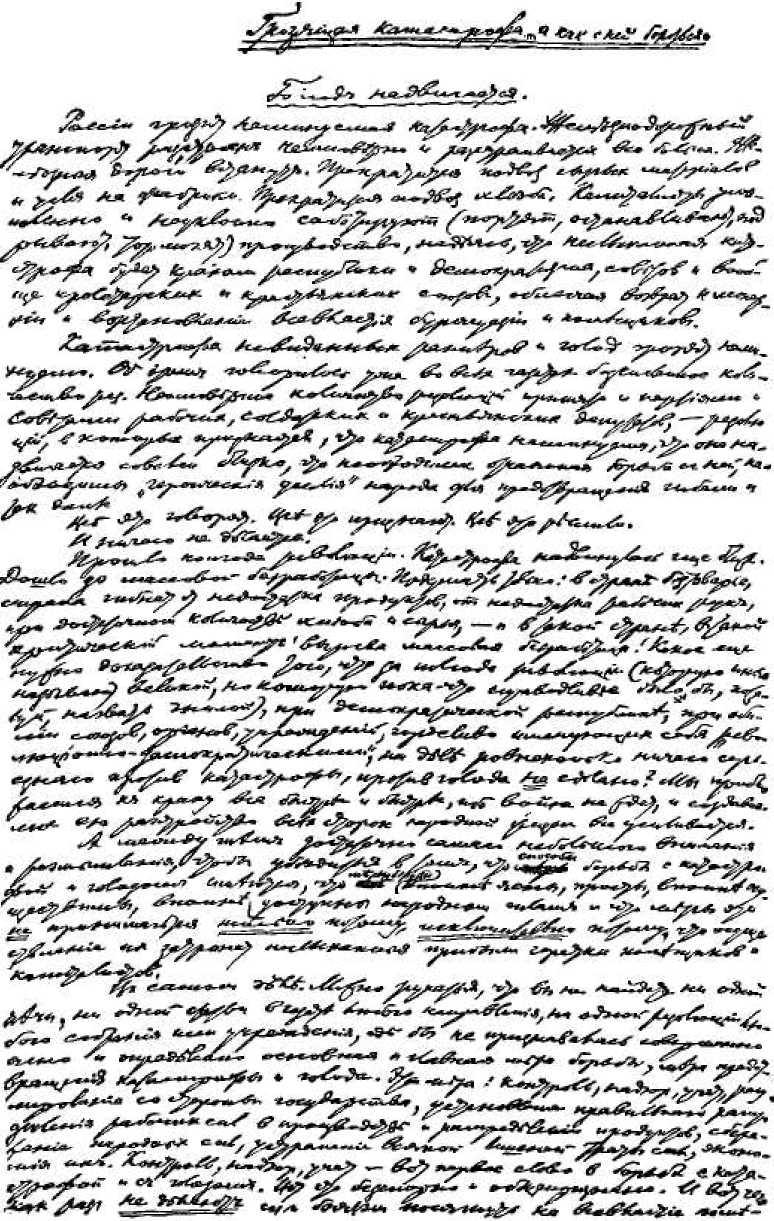 Грозящая катастрофа и как с ней бороться.
Голод надвигается.
России грозит неминуемая катастрофа. Железнодорожный
транспорт расстроен неимоверно и расстраивается все больше. Же-
лезные дороги встанут. Прекратится подвоз сырых материалов
и угля на фабрики. Прекратится подвоз хлеба. Капиталисты умыш-
ленно и неуклонно саботируют (портят, останавливают, под
рывают, тормозят) производство, надеясь, что неслыханная ката-
строфа будет крахом республики и демократизма, советов и вооб-
ще пролетарских и крестьянских союзов, облегчая возврат к монар-
хии и возстановлении всевластия буржуазии и помещиков.
Катастрофа невиданных размеров и голод грозят неми-
нуемо. Об этом говорилось уже во всех газетах безчисленное коли-
чество раз. Неимоверное количество резолюций принято и партиями и
Советами рабочих, солдатских и крестьянских депутатов, — резолю-
ций, в которых признается, что катастрофа неминуема, что она на-
двигается совсем близко, что необходима отчаянная борьба с ней, не-
обходимы „героическия усилия" народа для предотвращения гибели и
так далее
Все это говорят. Все это признают. Все это решили.
И ничего не делается.
Прошло полгода революции. Катастрофа надвинулась еще ближе.
Дошло до массовой безработицы. Подумать только: в стране безтоварье,
страна гибнет от недостатка продуктов, от недостатка рабочих рук,
при достаточном количестве хлеба и сырья, — и в такой стране, в такой
критический момент выросла массовая безработица! Какое еще
нужно доказательство того, что за полгода революции (которую иные
называют великой, но которую пока-что справедливее было бы, пожа-
луй, назвать гнилой), при демократической республике, при оби-
лии союзов, органов, учреждений, горделиво именующих себя „рево-
люционно-демократическими", на деле ровнехонько ничего серь-
езнаго против катастрофы, против голода не сделано? Мы прибли-
жаемся к краху все быстрее и быстрее, ибо война не ждет, и создавае-
мое ею разстройство всех сторон народной жизни все усиливается.
А между тем достаточно самаго небольшого внимания
и размышления, чтобы убедиться в том, что способы борьбы с катастро-
фой и голодом имеются, что меры борьбы вполне ясны, просты, вполне осу-
ществимы, вполне доступны народным силам и что меры эти
не принимаются только потому, исключительно потому, что осуще-
ствление их затронет неслыханныя прибыли горстки помещиков и
капиталистов.
В самом деле. Можно ручаться, что вы не найдете ни одной
речи, ни одной статьи в газете любого направления, ни одной резолюции лю-
бого собрания или учреждения, где бы не признавалась совершенно
ясно и определенно основная и главная мера борьбы, мера предот-
вращения катастрофы и голода. Эта мера: контроль, надзор, учет, регу-
лирование со стороны государства, установление правильнаго распре-
деления рабочих сил в производстве и распределении продуктов, сбере-
жение народных сил, устранение всякой лишней траты сил, эконо-
мия их. Контроль, надзор, учет — вот первое слово в борьбе с ката-
строфой и с голодом. Вот что безспорно и общепризнано. И вот чего
как раз не делают из боязни посягнуть на всевластие поме-